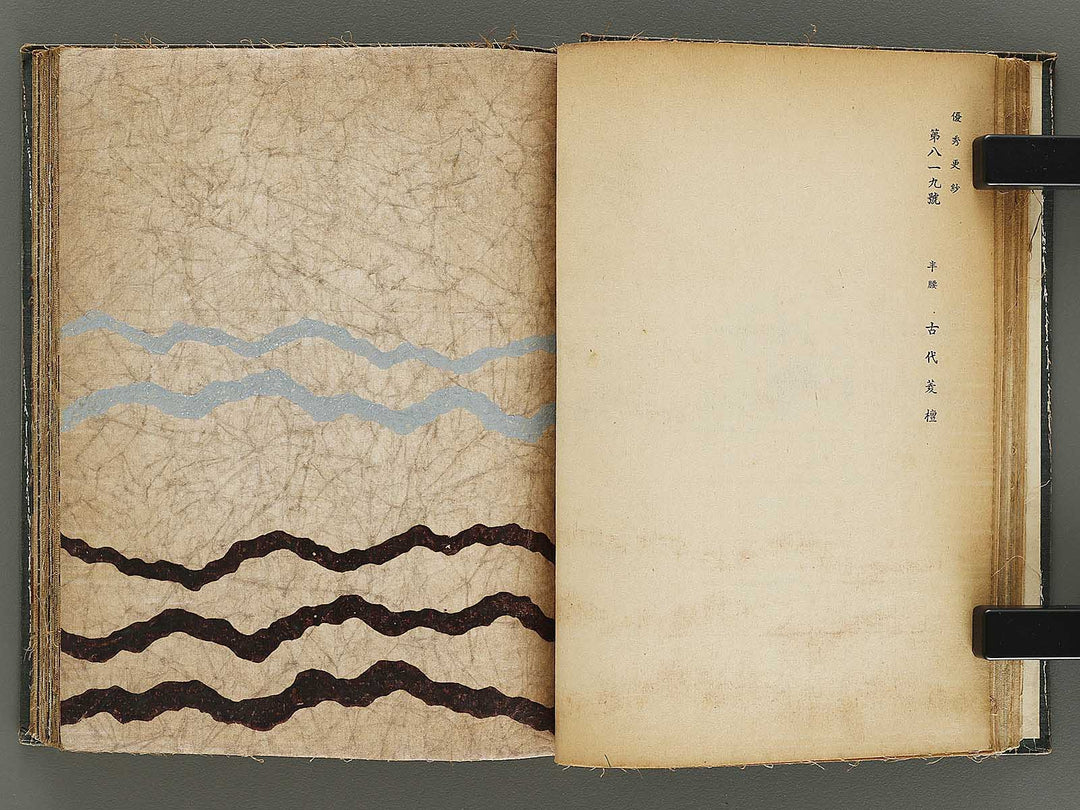 優秀更紗
第八一九號
半腰 古代菱檀